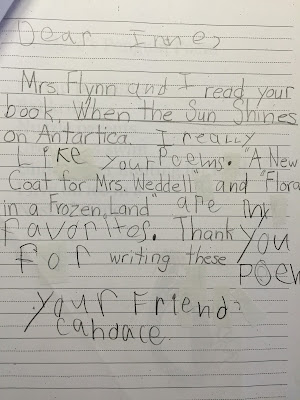 Dear Irene,
Mrs. Flynn and I read your
book, When the Sun Shines
on Antartica. I really
Like your Poems. "A New
Coat for Mrs. Weddell" and "Flora
in a Frozen Land" are my
favorites. Thank you
For writing these
POEM
your Friend,
Candace.